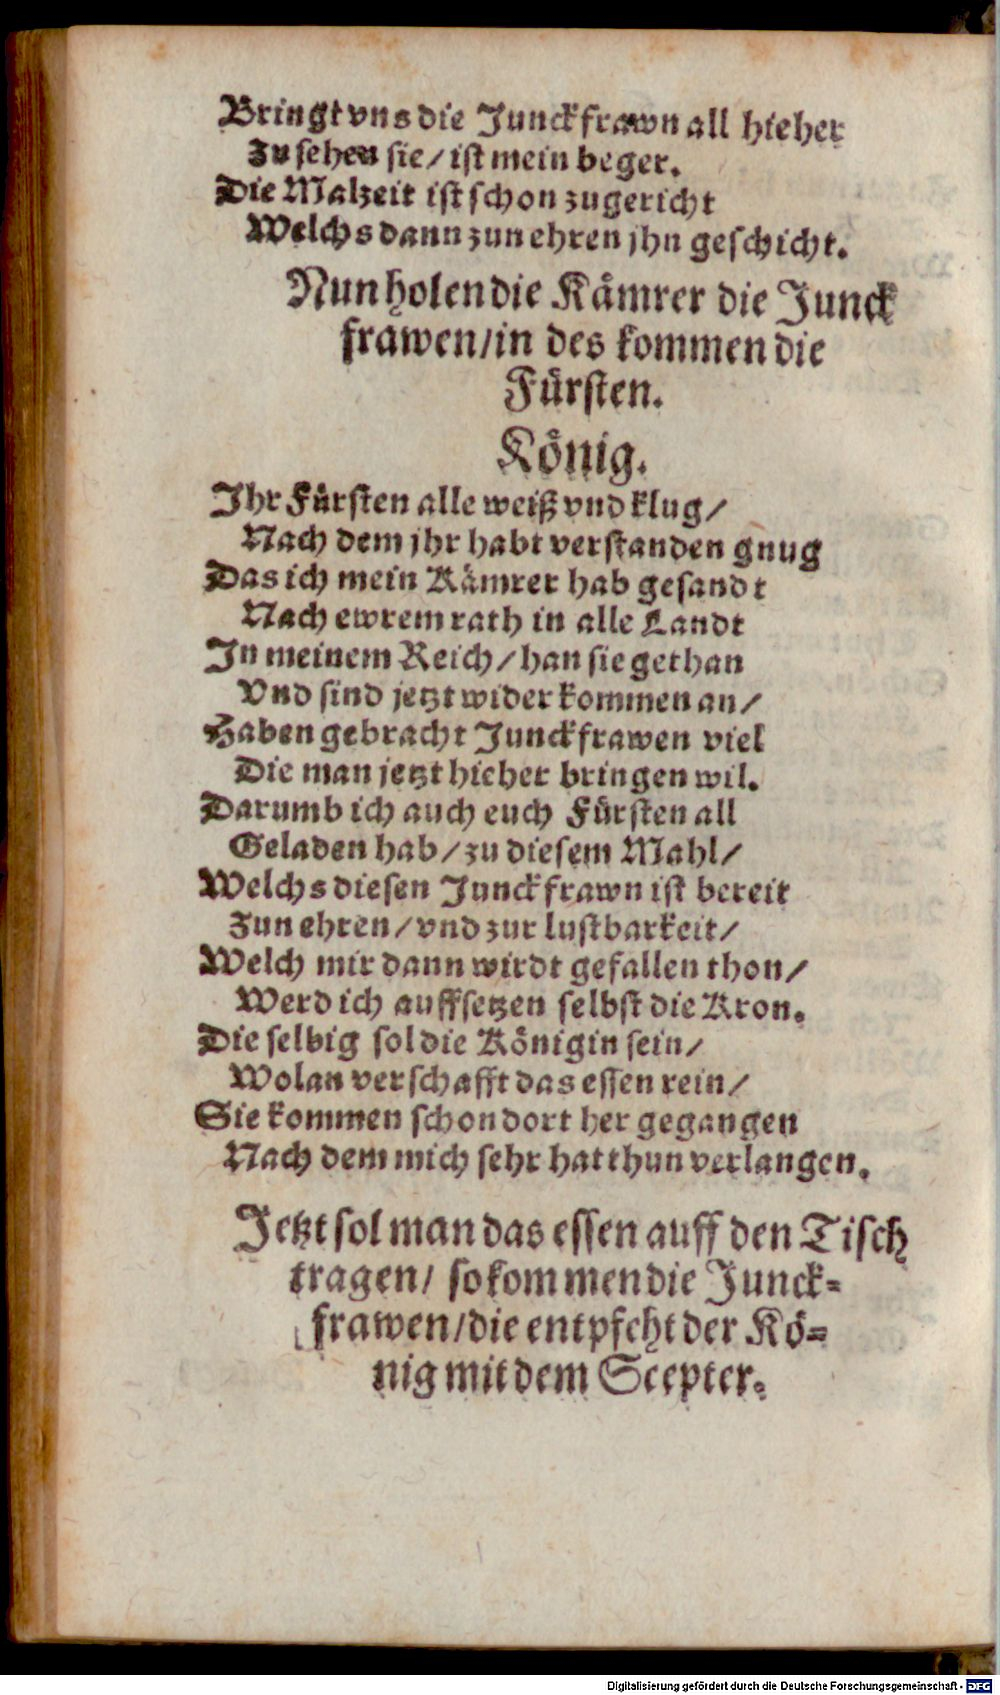 Bringt vns die Junckfrawn all hieher
Zu sehen sie/ ist mein beger.
Die Malzeit ist schon zugericht
Welchs dann zun ehren jhn geschicht.
Nun holen die Kaͤmrer die Junck
frawen/ in des kommen die
Fuͤrsten.
Koͤnig.
Ihr Fuͤrsten alle weiß vnd klug/
Nach dem jhr habt verstanden gnug
Das ich mein Kaͤmrer hab gesandt
Nach ewrem rath in alle Landt
In meinem Reich/ han sie gethan
Vnd sind jetzt wider kommen an/
Haben gebracht Junckfrawen viel
Die man jetzt hieher bringen wil.
Darumb ich auch euch Fuͤrsten all
Geladen hab/ zu diesem Mahl/
Welchs diesen Junckfrawn ist bereit
Zun ehren/ vnd zur lustbarkeit/
Welch mir dann wirdt gefallen thon/
Werd ich auffsetzen selbst die Kron.
Die selbig sol die Koͤnigin sein/
Wolan verschafft das essen rein/
Sie kommen schon dort her gegangen
Nach dem mich sehr hat thun verlangen.
Jetzt sol man das essen auff den Tisch
tragen/ so kommen die Junck-
frawen/ die entpfeht der Koͤ-
nig mit dem Scepter.
Digitalisierung gefördert durch die Deutsche Forschungsgemeinschaft - DFG